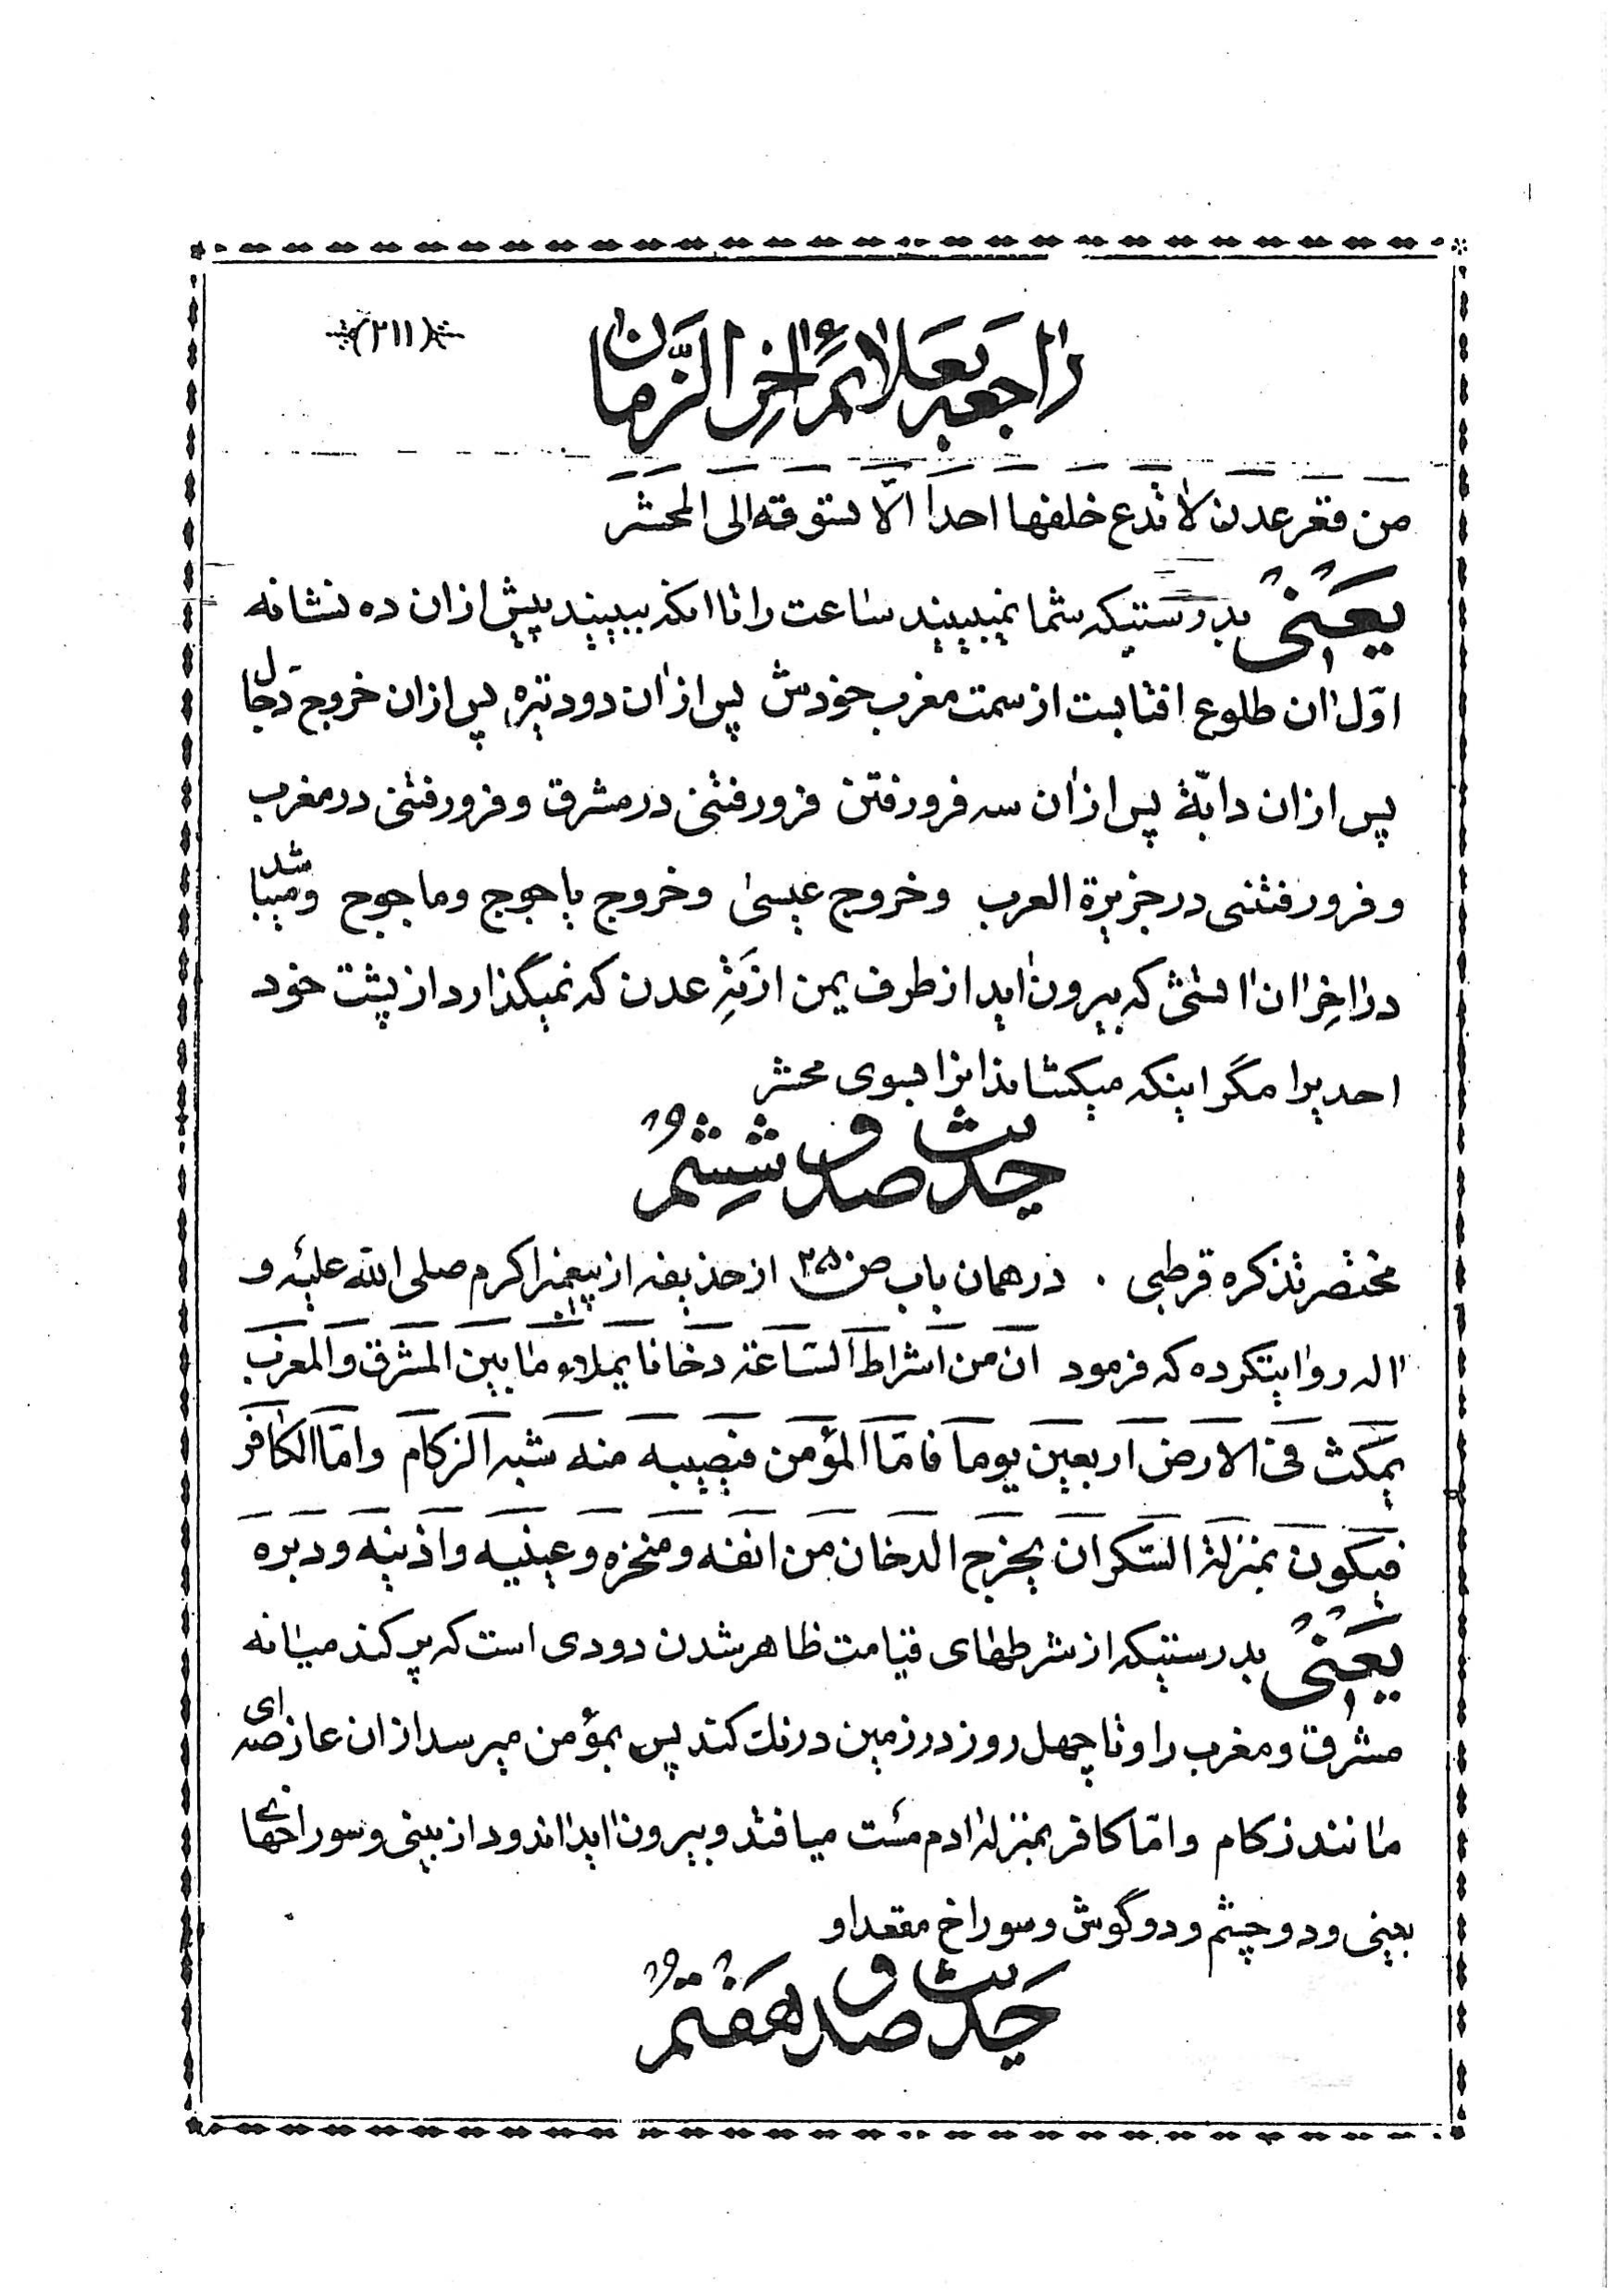 (۲۱۱)
راجعه بعلائم اخر الزمان
من قعر عدن لا تدع خلفها احدا الّا تسوقه الى المحشر
یعنی بدرستیکه شما نمیبینید ساعت را تا انکه ببینید پیش از ان ده نشانه
اوّل ان طلوع افتابست از سمت مغرب خودش پس از ان دود تیره پس از ان خروج دجال
پس از ان دابّة پس از ان سه فرورفتن فرورفتنی در مشرق و فرورفتنی در مغرب
و فرورفتنی در جزیرة العرب و خروج عیسی و خروج یاجوج و ماجوج و میباشد
در اخر ان اتشی که بیرون اید از طرف یمن از تهِ عدن که نمیگذارد از پشت خود
احدیرا مگر اینکه میکشاند انرا بسوی محشر
حدیث صد و ششم
مختصر تذکره قرطبی . در همان باب ص۲۵ از حذیفه از پیغمبر اکرم صلی الله علیه و
اله روایتکرده که فرمود ان من اشراط الساعة دخانا یملاء ما بین المشرق و المغرب
یمکث فی الارض اربعین یوما فامّا المؤمن فیصیبه منه شبه الزکام و امّا الکافر
فیکون بمنزلة السکران یخرج الدخان من انفه و منخره و عینیه و اذنیه و دبره
یعنی بدرستیکه از شرطهای قیامت ظاهر شدن دودی است که پر کند میانه
مشرق و مغرب را و تا چهل روز در زمین درنك کند پس بمؤمن میرسد از ان عارضه ای
مانند زکام و امّا کافر بمنزله ادم مست میافتد و بیرون اید اندود از بینی و سوراخهای
بینی و دو چشم و دو گوش و سوراخ مقعد او
حدیث صد و هفتم